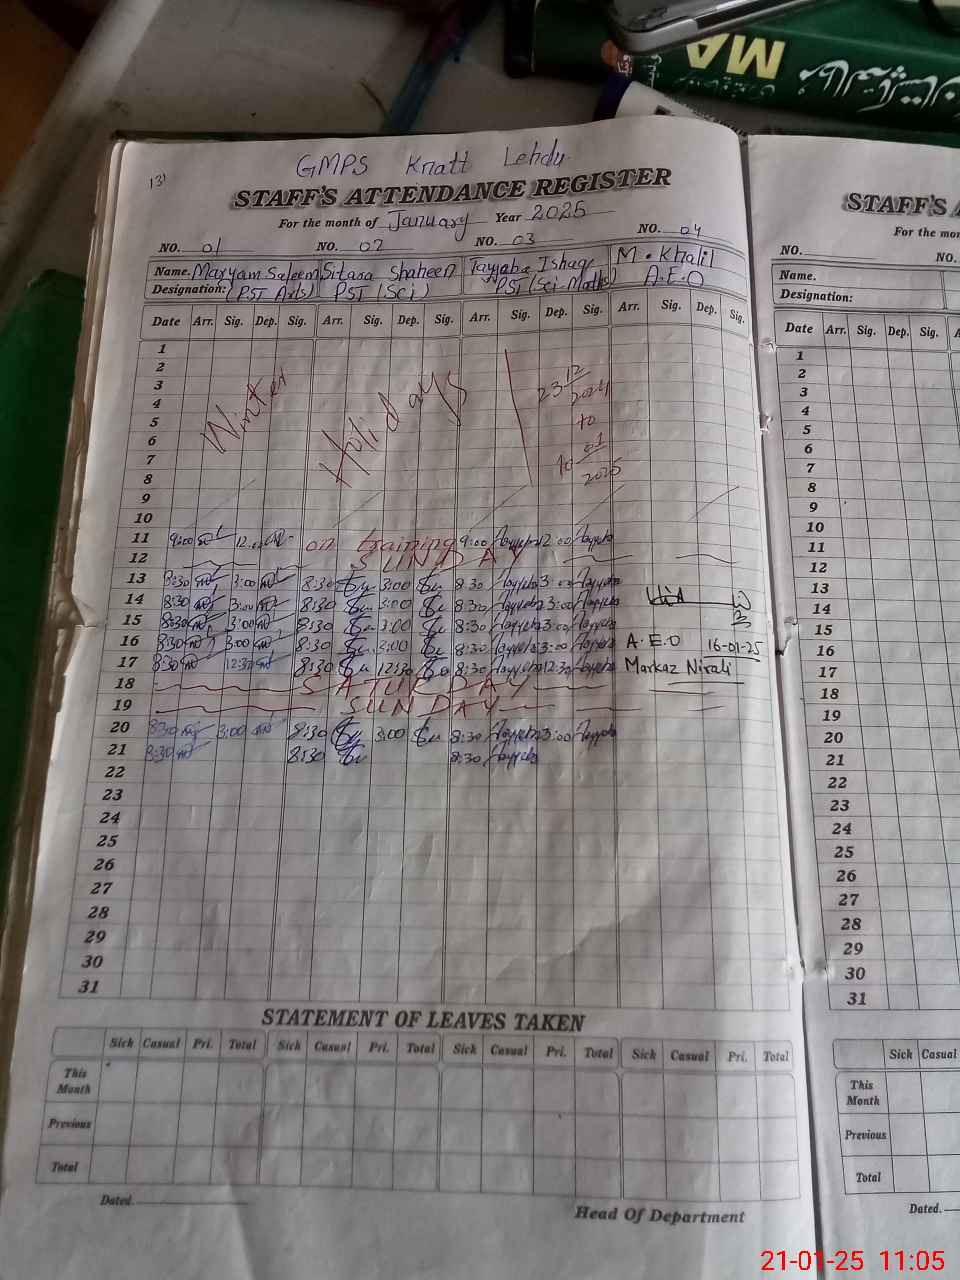 MA
131
GMPS Knatt Lehdu
STAFF'S ATTENDANCE REGISTER
For the month of January Year 2025
NO. 01 NO. 02 NO. 03 NO. 04
Name. Maryam Saleem Sitara Shaheen Tayyaba Ishaq M. Khalil
Designation: (PST Arts) PST (Sci) PST (Sci-Maths) A.E.O
Date Arr. Sig. Dep. Sig. Arr. Sig. Dep. Sig. Arr. Sig. Dep. Sig. Arr. Sig. Dep. Sig.
1
2
3
4
5
6
7
8
9
10
Winter Holidays 23 12/2024 to 10 01/2025
11 9:00 12:00 on training 9:00 Tayyeba 12:00 Tayyeba
12 SUNDAY
13 8:30 3:00 8:30 3:00 8:30 Tayyeba 3:00 Tayyeba
14 8:30 3:00 8:30 3:00 8:30 Tayyeba 3:00 Tayyeba
15 8:30 3:00 8:30 3:00 8:30 Tayyeba 3:00 Tayyeba
16 8:30 3:00 8:30 3:00 8:30 Tayyeba 3:00 Tayyeba A.E.O 16-01-25
17 8:30 12:30 8:30 12:30 8:30 Tayyeba 12:30 Tayyeba Markaz Nirali
18 SATURDAY
19 SUNDAY
20 8:30 3:00 8:30 3:00 8:30 Tayyeba 3:00 Tayyeba
21 8:30 8:30 8:30 Tayyeba
22
23
24
25
26
27
28
29
30
31
STATEMENT OF LEAVES TAKEN
Sick Casual Pri. Total Sick Casual Pri. Total Sick Casual Pri. Total Sick Casual Pri. Total
This Month
Previous
Total
Dated.
Head Of Department
STAFF'S A
For the mon
NO. NO.
Name.
Designation:
Date Arr. Sig. Dep. Sig. A
1
2
3
4
5
6
7
8
9
10
11
12
13
14
15
16
17
18
19
20
21
22
23
24
25
26
27
28
29
30
31
Sick Casual
This Month
Previous
Total
Dated.
21-01-25 11:05